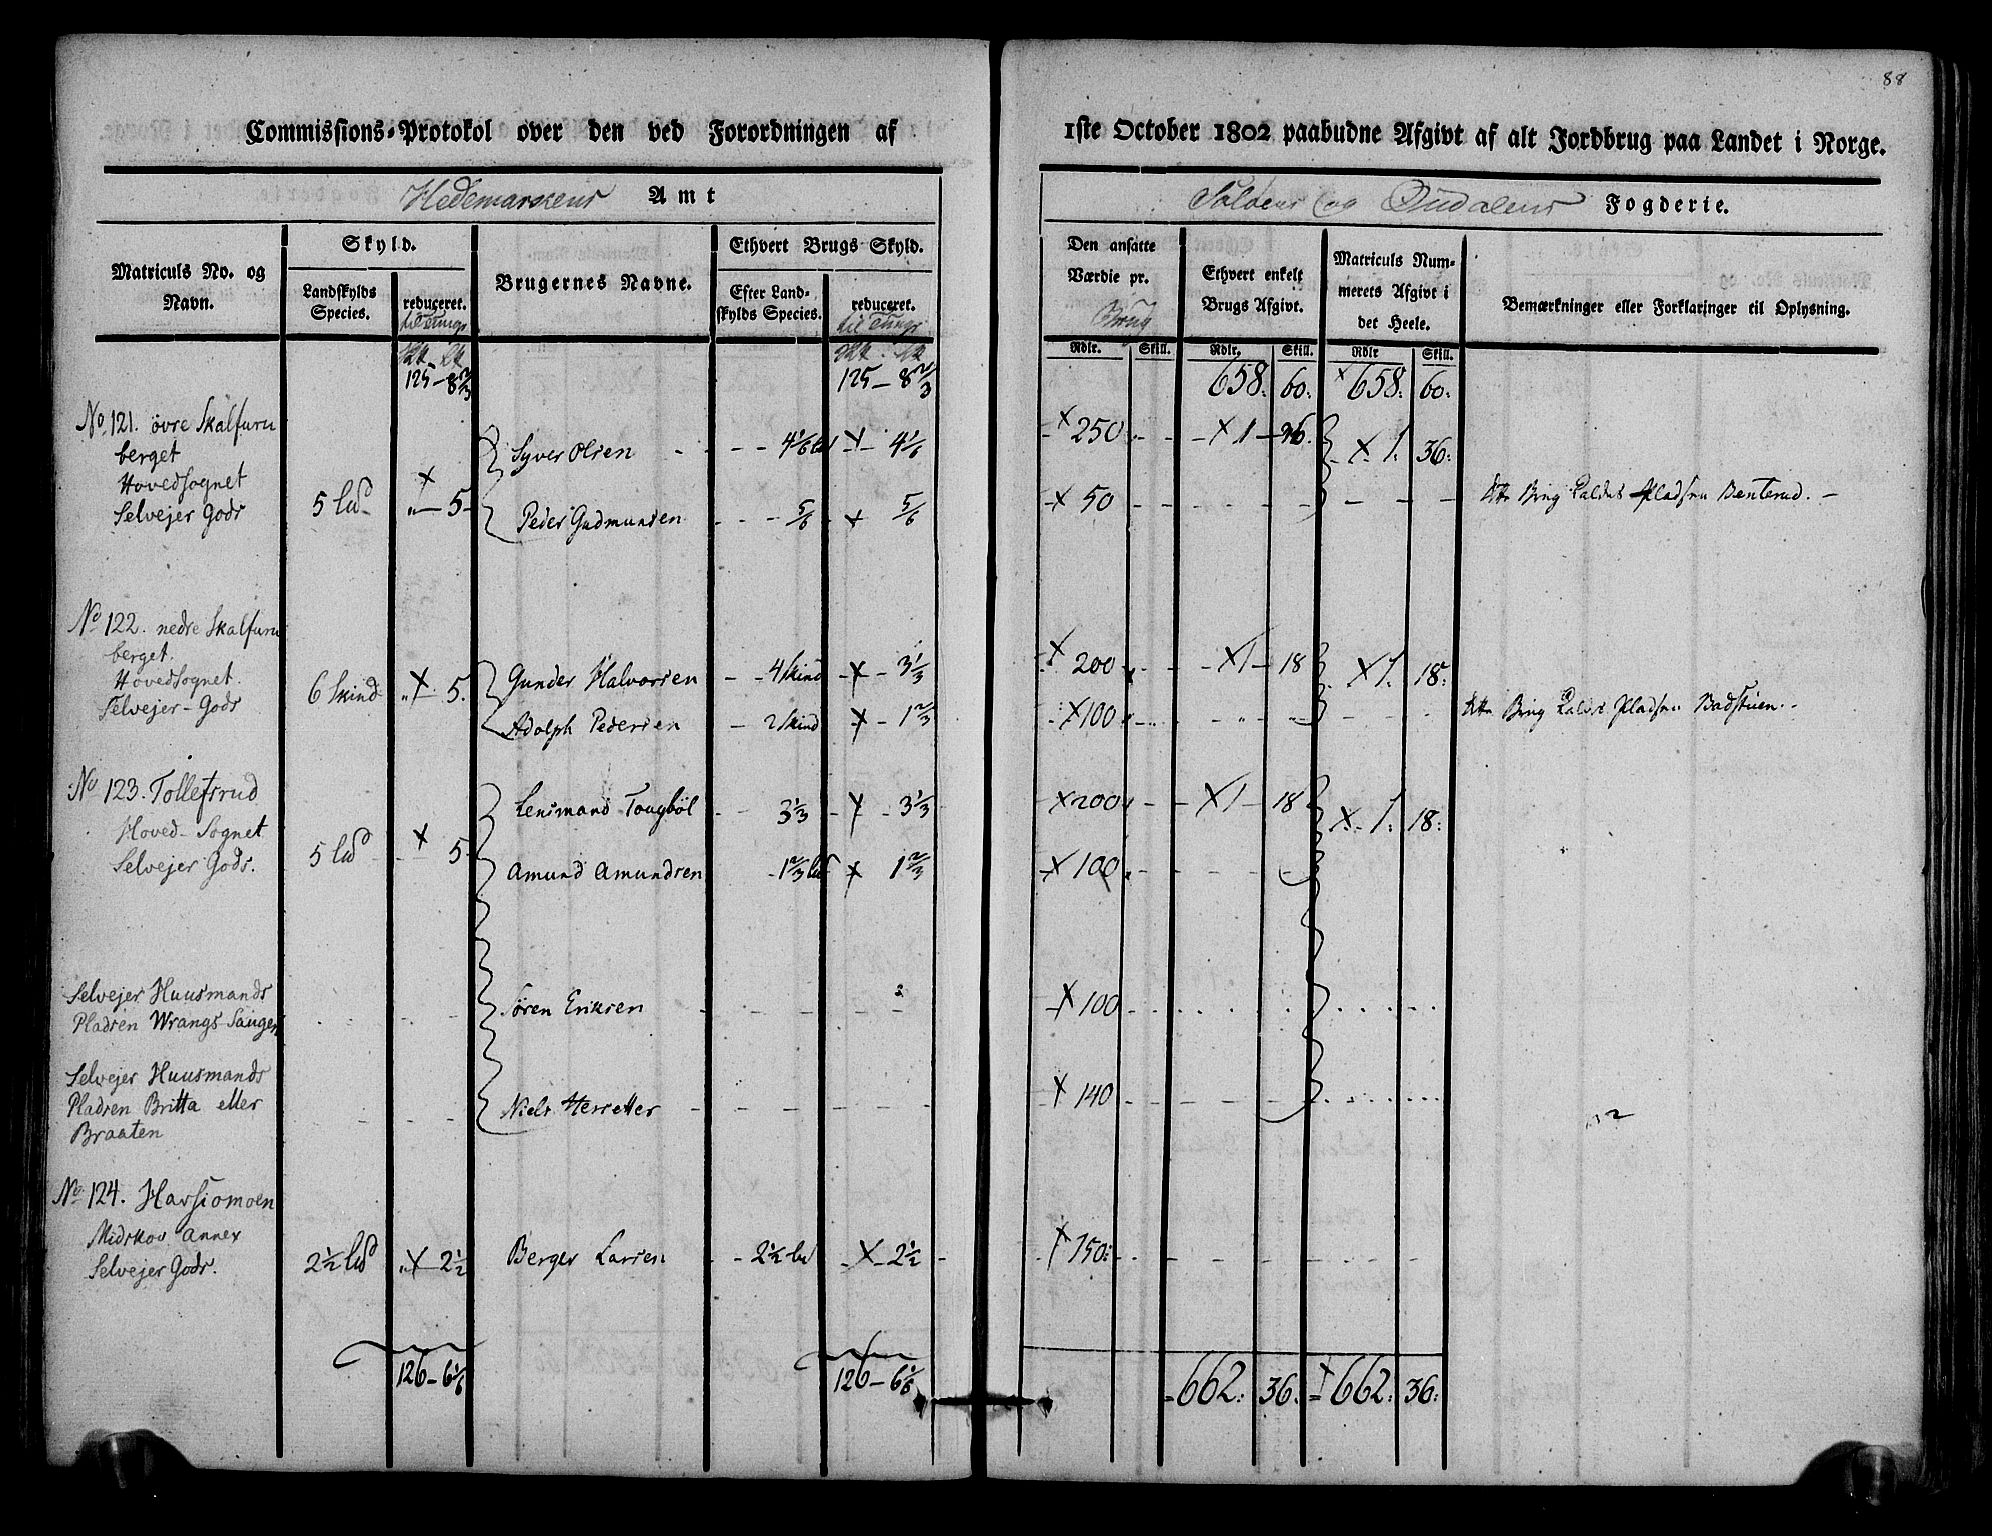 88
Commissions-Protokol over den ved Forordningen af
1ste October 1802 paabudne Afgivt af alt Jordbrug paa Landet i Norge.
Hedemarkens Amt
Soløens og Oudalens Fogderie.
Matriculs No. og Navn.
Skyld.
Landskylds Species.
reduceret.
Brugernes Navne.
Ethvert Brugs Skyld.
Efter Landskylds Species.
reduceret.
Den ansatte Værdie pr. Brug
Ethvert enkelt Brugs Afgivt.
Matriculs Nummerets Afgivt i det Heele.
Bemærkninger eller Forklaringer til Oplysning.
Rdlr. Skill. Rdlr. Skill. Rdlr Skill.
125 – 8 2/3 125 – 8 2/3 658: 60: 658: 60:
No 121. øvre Skalfuru
berget
Hovedsognet
Selvejer Gods 5 5
Syver Olsen 4 1/6 4 1/6 250 1 36: 1: 36:
Peder Gudmunsen 5/6 5/6 50 Brug Pladsen Benterud.
No 122. nedre Skalfuru
berget.
Hovedsognet.
Selvejer-Gods 6 Skind 5.
Gunder Halvorsen 4 Skind 3 1/3 200 1 18 1: 18:
Adolph Pedersen 2 Skind 1 2/3 100 Brug Pladsen Badstuen.
No 123. Tollefsrud
Hoved-Sognet
Selvejer Gods. 5 5
Lensmand Tougbøl 3 1/3 3 1/3 200 1 18 1: 18:
Amund Amundsen 1 2/3 1 2/3 100
Selvejer Huusmands
Pladsen Wrangs-Sauger Søren Eriksen 100
Selvejer Huusmands
Pladsen Britta eller Niels 140
Braaten
No 124.
Midskov Annex
Selvejer Gods. 2 1/2 2 1/2 Berger Larsen 2 1/2 2 1/2 150:
126 – 6 1/6 126 – 6 1/6 662: 36: 662: 36: